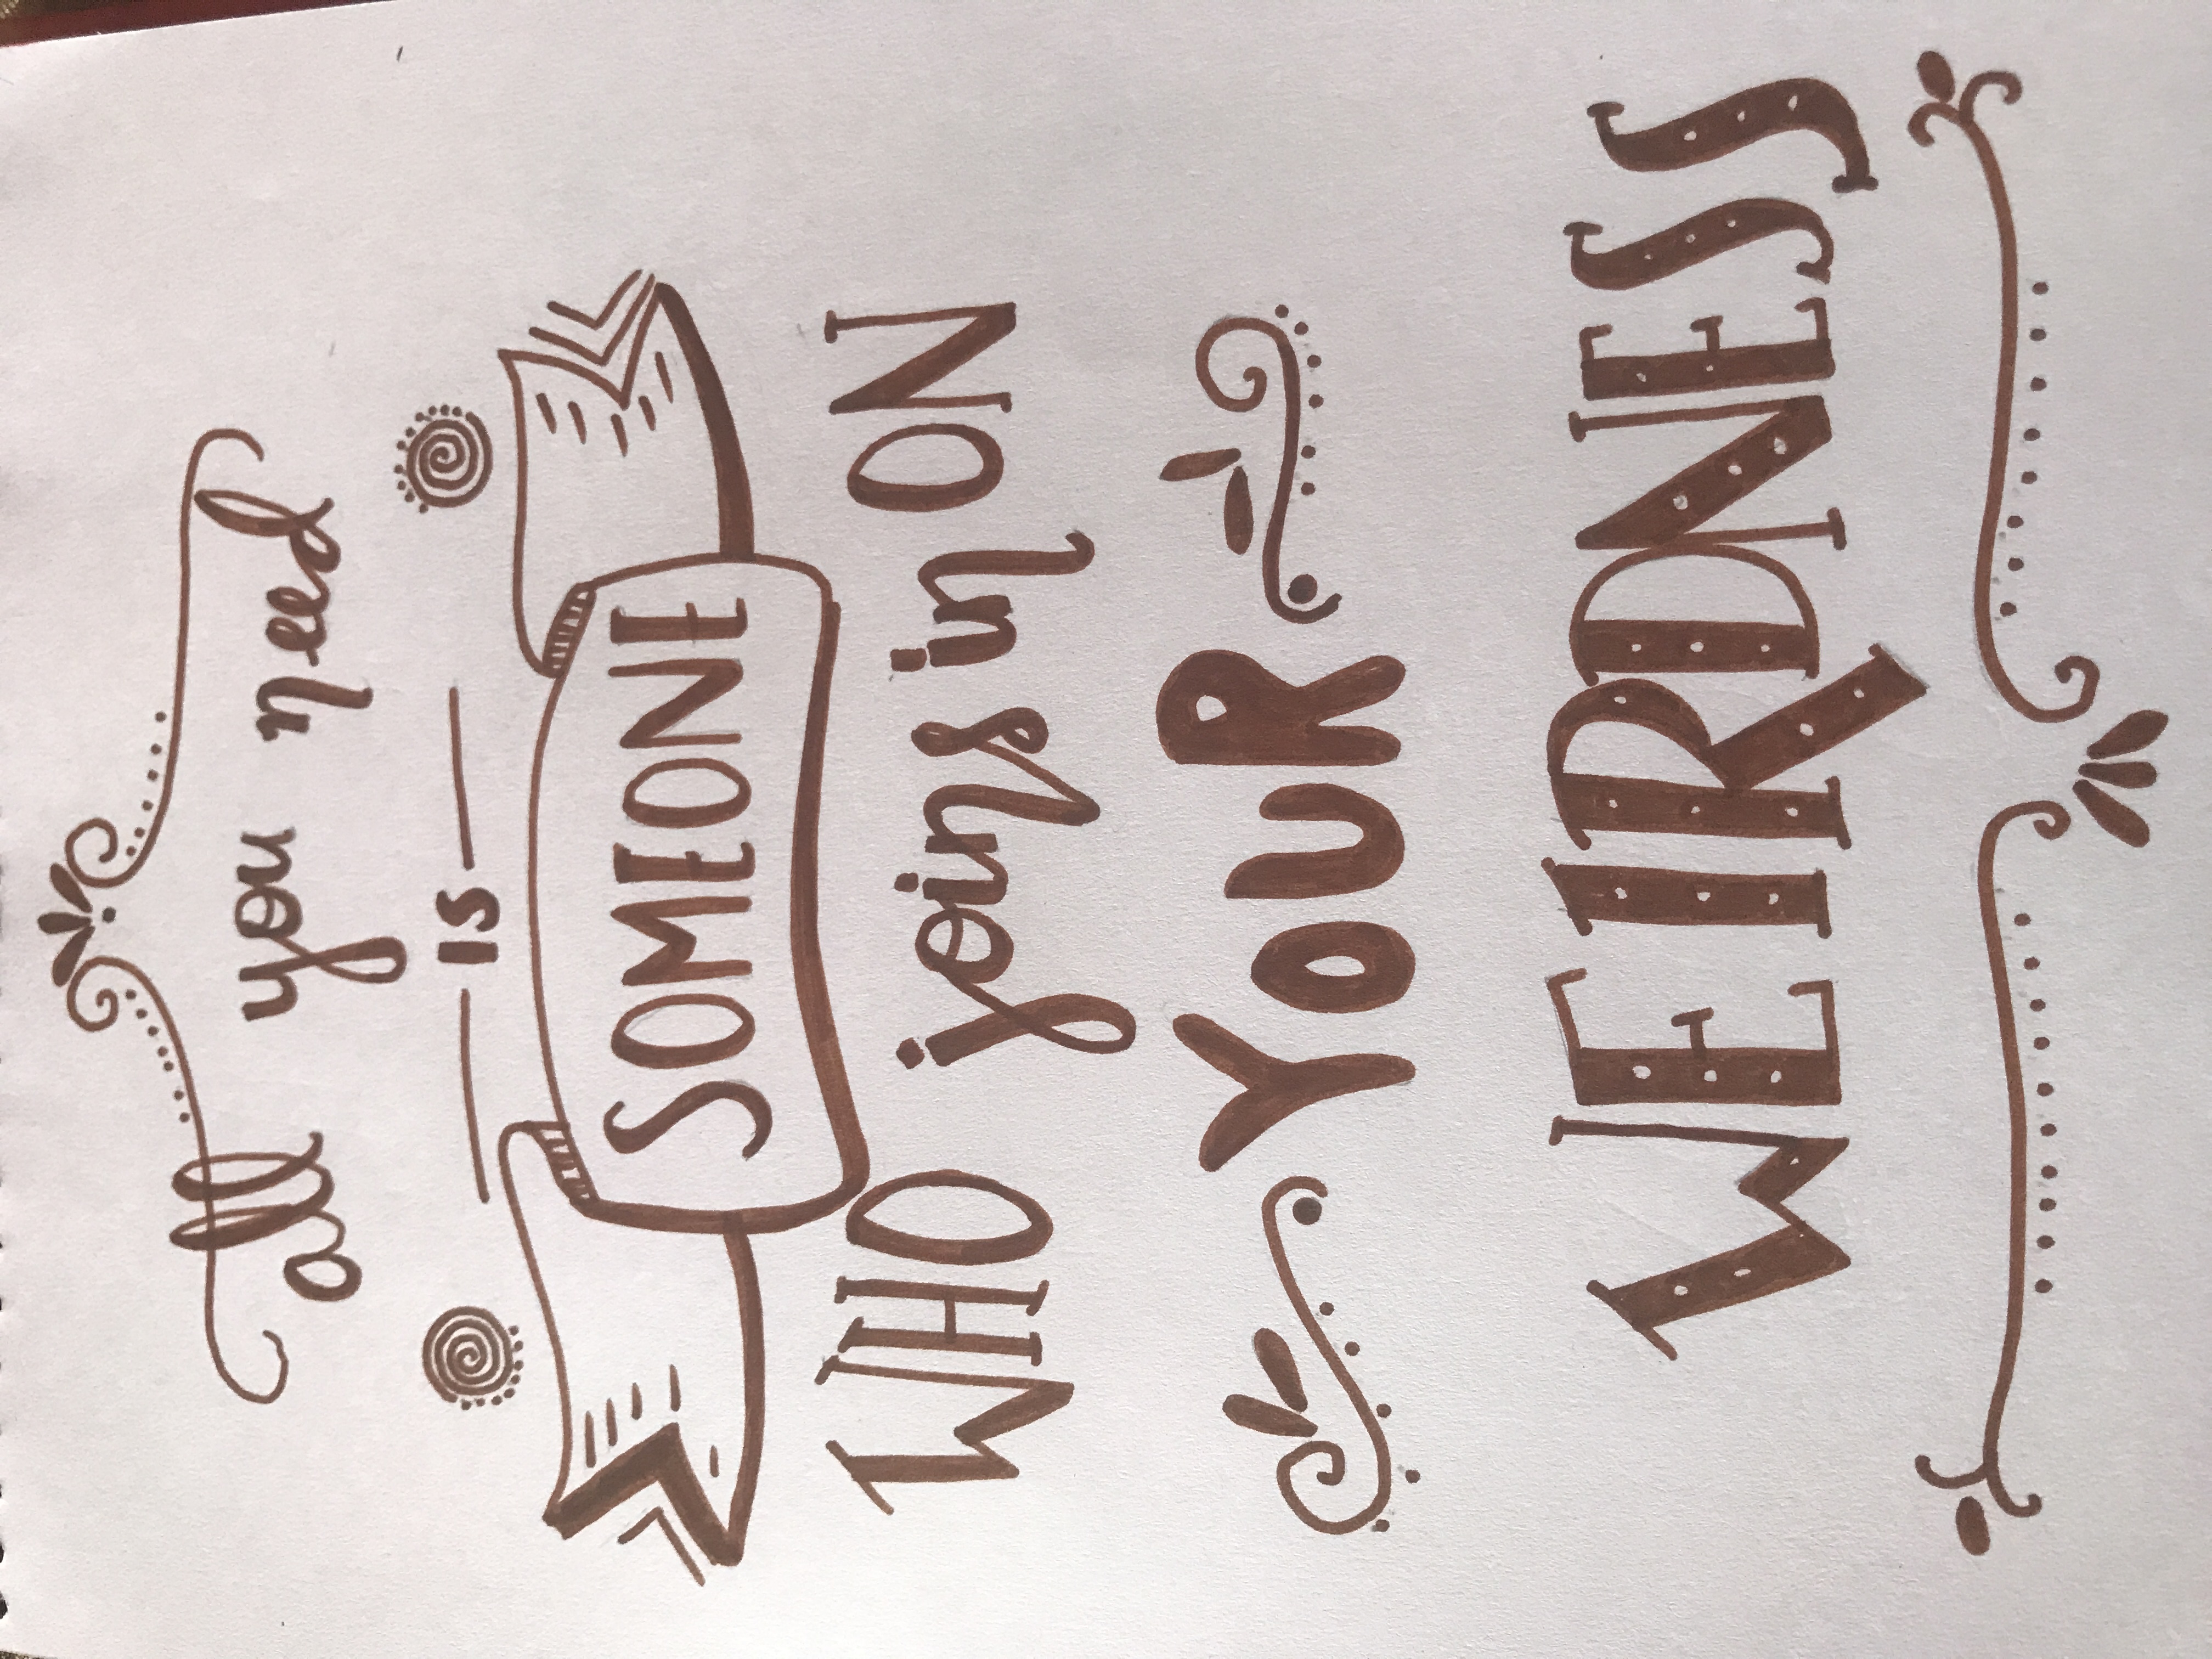 all you need
IS
SOMEONE
WHO joins in ON
YOUR
WEIRDNESS